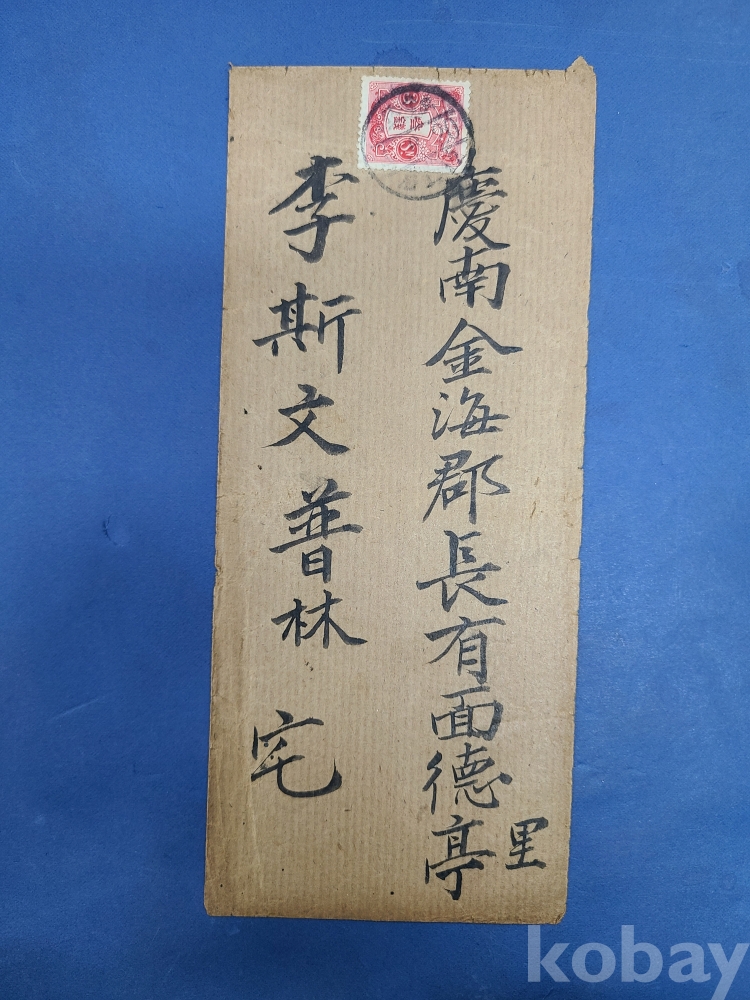 慶南金海郡長有面德亭里
李斯文普林 宅
kobay